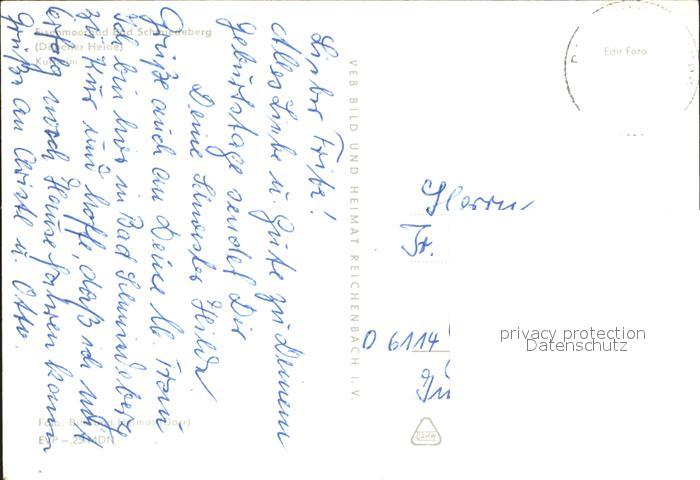 Eisenmoorbad Bad Schmiedeberg
(Dübener Heide)
Kurheim
Lieber Fritz!
Alles Liebe u. Gute zu Deinem
Geburtstage sendet Dir
Deine Schwester Hilda
Grüße auch an Deine lb. Frau
Ich bin hier in Bad Schmiedeberg
zur Kur und hoffe, daß ich mit
Erfolg nach Hause fahren kann
Grüße an Christl u. Otto.
Foto: Bild und Heimat
EVP –.25 MDN
VEB BILD UND HEIMAT REICHENBACH I. V.
Edit Foto
Herrn
Fr.
O 6114
privacy protection
Datenschutz